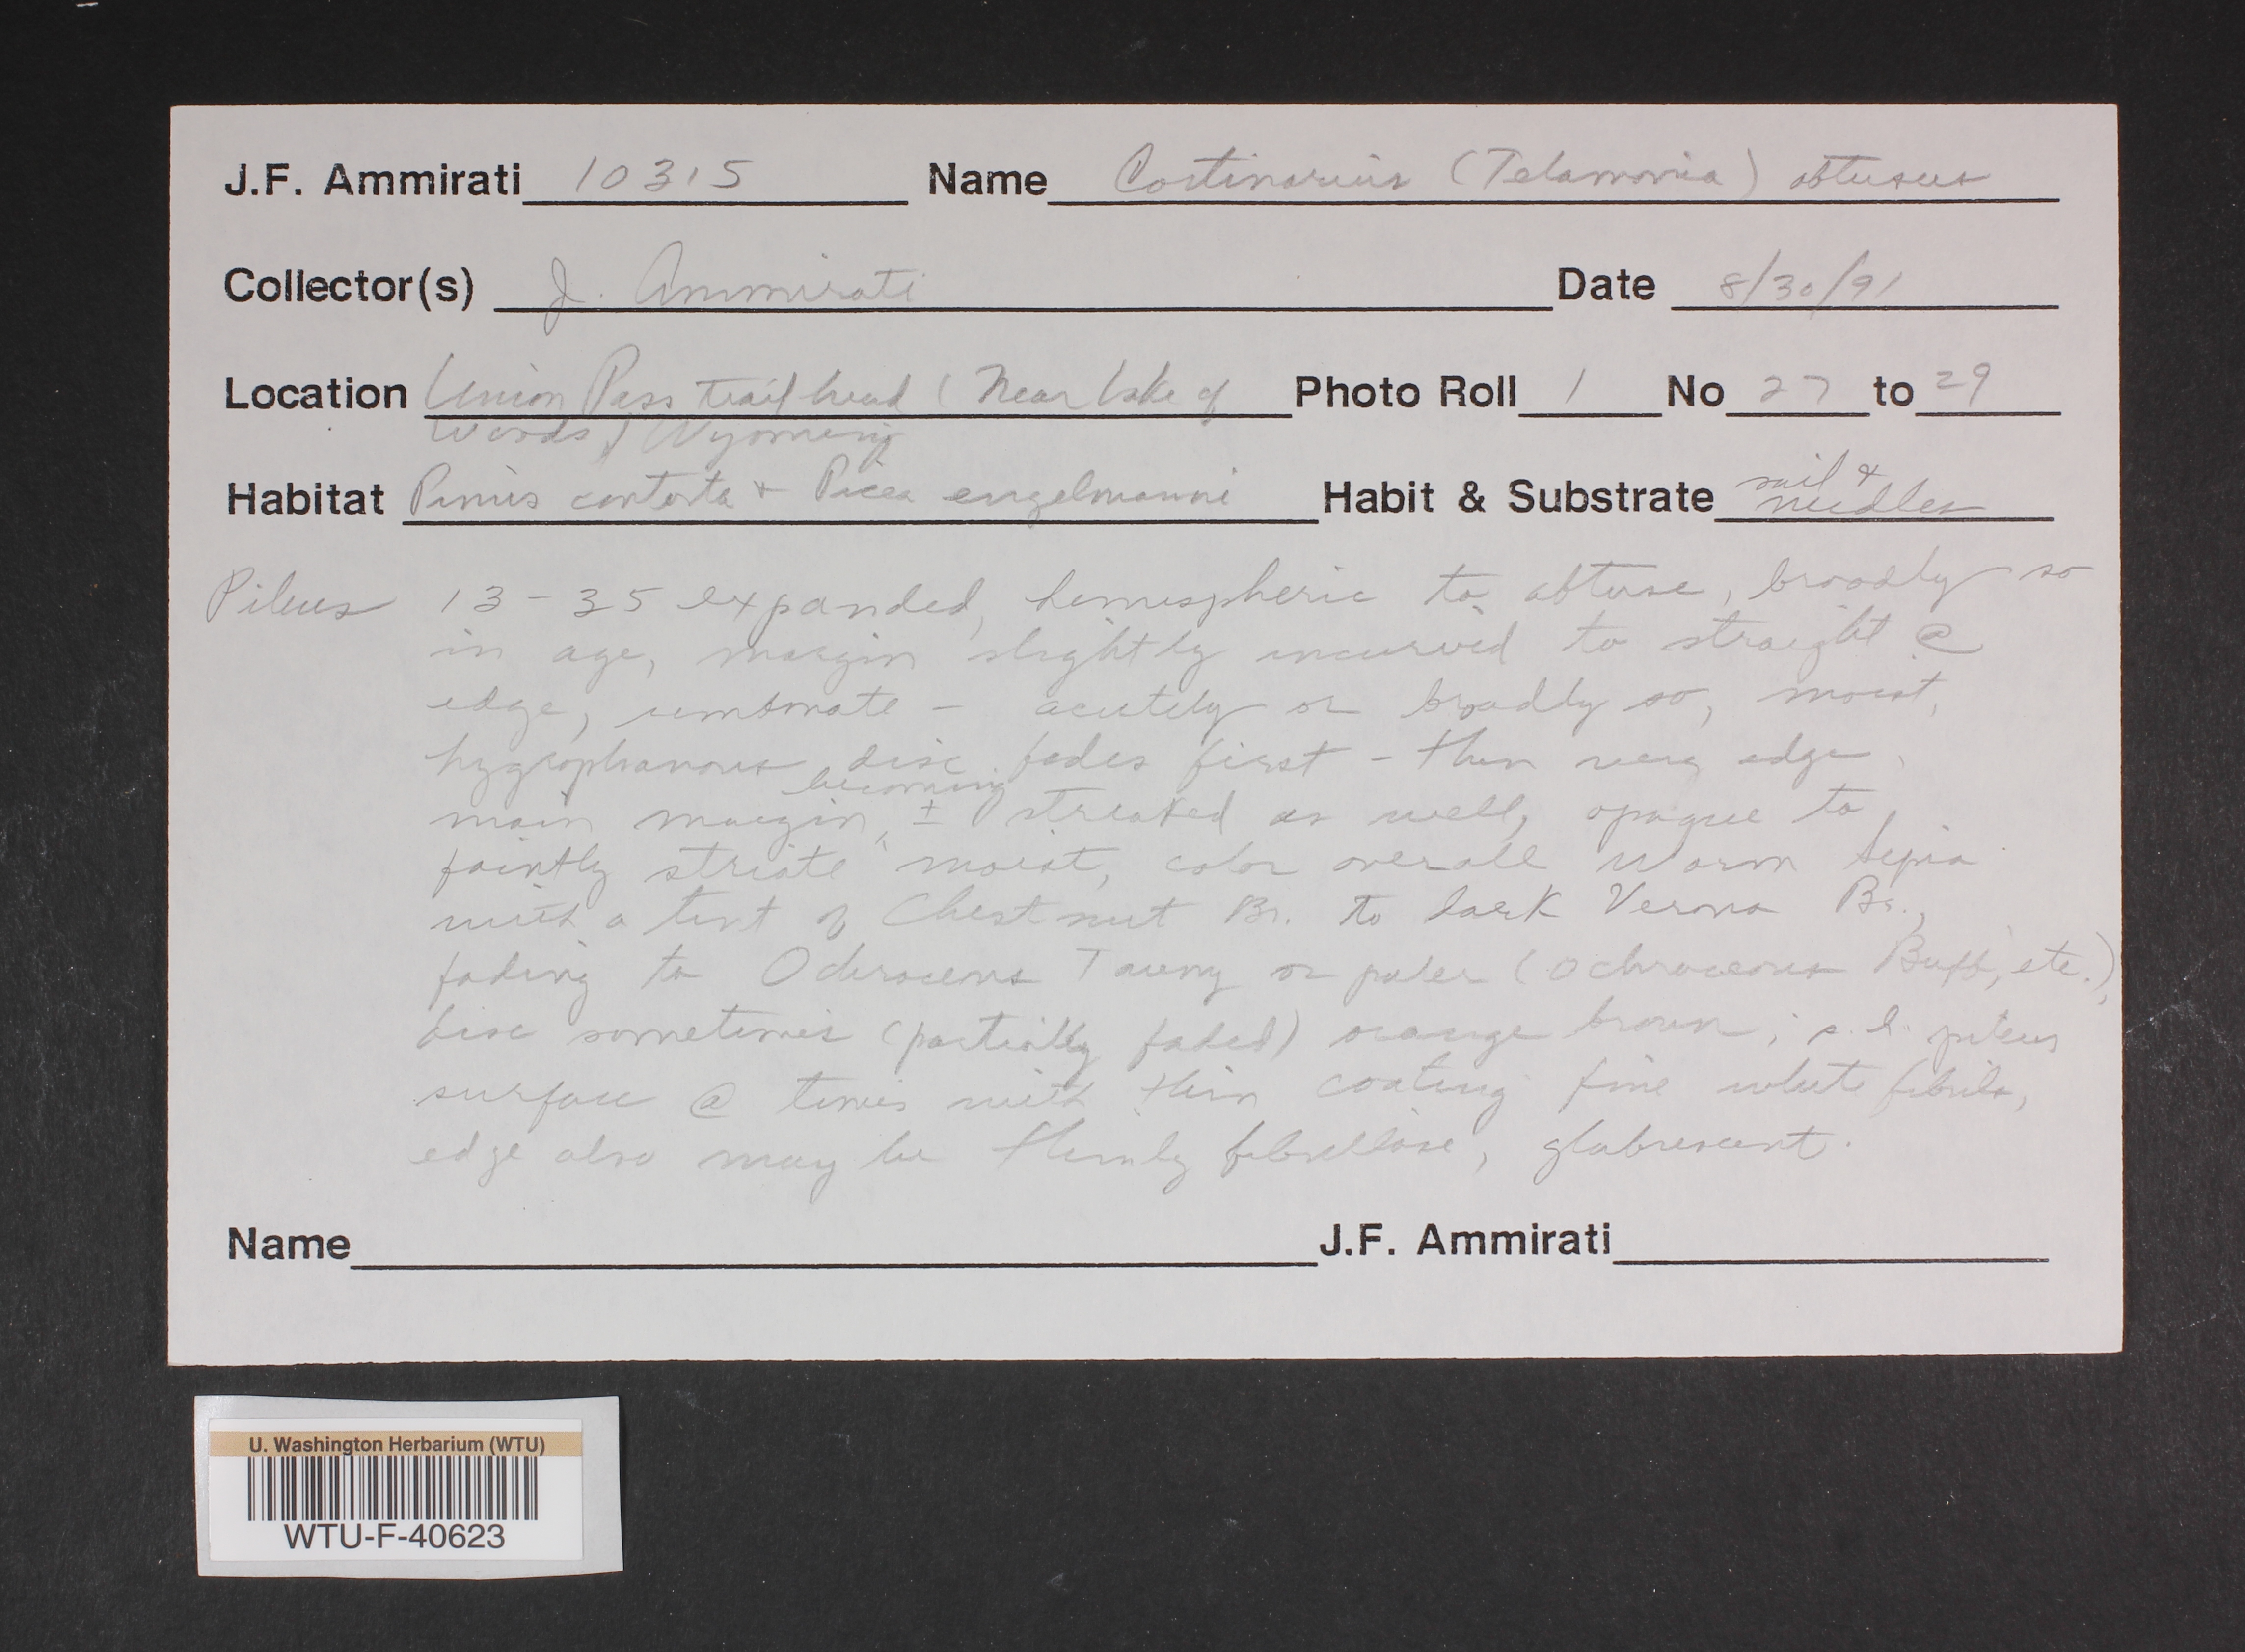 J.F. Ammirati 10315 Name Cortinarius (Telamonia) obtusus
Collector(s) J. Ammirati Date 8/30/91
Location Union Pass trailhead (Near Lake of Photo Roll 1 No 27 to 29
Woods) Wyoming
Habitat Pinus contorta + Picea engelmanni Habit & Substrate soil & needles
Pileus 13-35 expanded, hemispheric to obtuse, broadly so
in age, margin slightly incurved to straight @
edge, umbonate - acutely or broadly so, moist,
hygrophanous disc fades first - then very edge,
main margin, becoming ± streaked as well, opaque to
faintly striate moist, color overall Warm Sepia
with a tint of Chestnut Br. to dark Verona Br.,
fading to Ochraceous Tawny or paler (Ochraceous Buff, etc.),
disc sometimes (partially faded) orange brown; pileus
surface @ times with thin coating fine white fibrils,
edge also may be thinly fibrillose, glabrescent.
Name J.F. Ammirati
U. Washington Herbarium (WTU)
WTU-F-40623